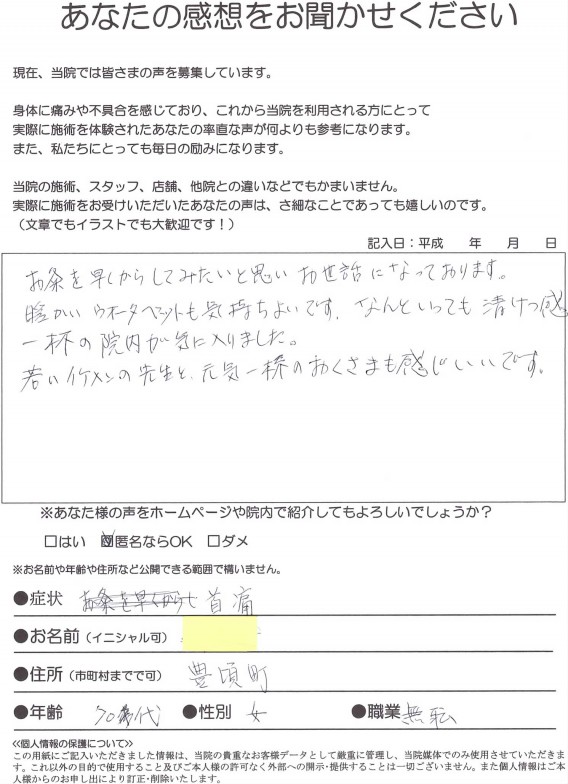 あなたの感想をお聞かせください
現在、当院では皆さまの声を募集しています。
身体に痛みや不具合を感じており、これから当院を利用される方にとって
実際に施術を体験されたあなたの率直な声が何よりも参考になります。
また、私たちにとっても毎日の励みになります。
当院の施術、スタッフ、店舗、他院との違いなどでもかまいません。
実際に施術をお受けいただいたあなたの声は、さ細なことであっても嬉しいのです。
（文章でもイラストでも大歓迎です！）
記入日：平成　　年　　月　　日
お灸を早くからしてみたいと思いお世話になっております。
暖かいウオータベットも気持ちよいです。なんといっても清けつ感
一杯の院内が気に入りました。
若いイケメンの先生と、元気一杯のおくさまも感じいいです。
※あなた様の声をホームページや院内で紹介してもよろしいでしょうか？
□はい　☑匿名ならOK　□ダメ
※お名前や年齢や住所など公開できる範囲で構いません。
●症状　首痛
●お名前（イニシャル可）
●住所（市町村までで可）　豊頃町
●年齢　70代　●性別　女　●職業　無転
≪個人情報の保護について≫
この用紙にご記入いただきました情報は、当院の貴重なお客様データとして厳重に管理し、当院媒体でのみ使用させていただきま
す。これ以外の目的で使用すること及びご本人様の許可なく外部への開示・提供することは一切ございません。また個人情報はご本
人様からのお申し出により訂正・削除いたします。